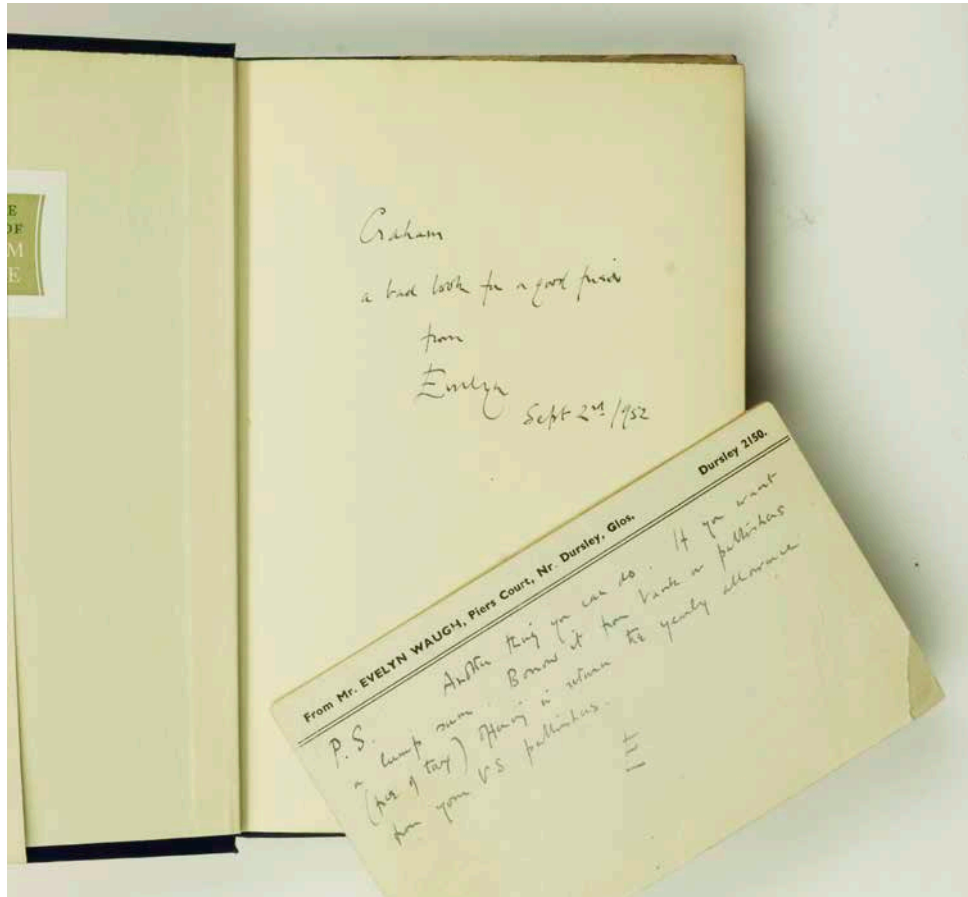 E
OF
M
E
Graham
a bad book for a good friend
from
Evelyn
Sept 2nd 1952
From Mr. EVELYN WAUGH, Piers Court, Nr. Dursley, Glos. Dursley 2150.
P.S. Another thing you can do. If you want
a lump sum. Borrow it from bank or publishers
(free of tax) in return the yearly allowance
from your US publishers.
E